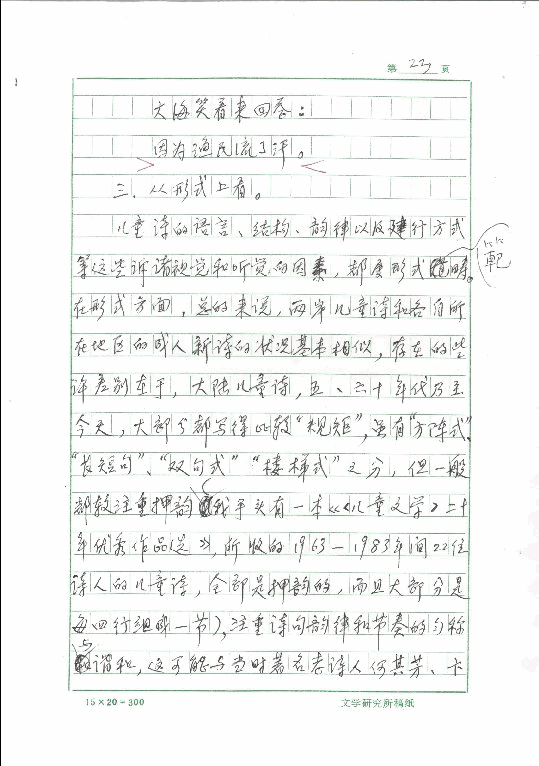 第 23 页
大海笑着来回卷：
因为渔民流了汗。
三. 从形式上看。
儿童诗的语言、结构、韵律以及建行方式
等这些诉诸视觉和听觉的因素，都属形式范畴。
在形式方面，总的来说，两岸儿童诗和各自所
在地区的成人新诗的状况基本相似，存在的些
许差别在于，大陆儿童诗，五、六十年代乃至
今天，大部分都写得比较“规矩”，虽有“方阵式”、
“长短句”、“双句式”“楼梯式”之分，但一般
都较注重押韵（我手头有一本《《儿童文学》二十
年优秀作品选》，所收的1963—1983年间22位
诗人的儿童诗，全部是押韵的，而且大部分是
每四行组成一节），注重诗句韵律和节奏的匀称
与谐和，这可能与当时著名老诗人何其芳、卞
15×20=300 文学研究所稿纸